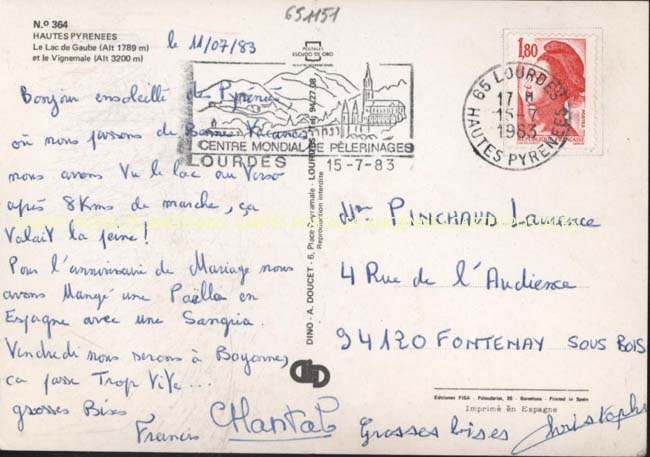 651151
N.º 364
HAUTES PYRENEES
Le Lac de Gaube (Alt 1789 m)
et le Vignemale (Alt 3200 m)
le 11/07/83
Bonjour ensoleillé des Pyrénées
où nous passons de Bonnes Vacances
nous avons Vu le lac au Verso
après 8 Kms de marche, ça
Valait la peine!
Pour l'anniversaire de Mariage nous
avons Mangé une Paëlla en
Espagne avec une Sangria.
Vendredi nous serons à Bayonne,
ça passe Trop Vite...
grosses Bises
Francis
CHantal
Grosses bises Christophe
POSTALES
ESCUDO DE ORO
CENTRE MONDIAL DE PÈLERINAGES
LOURDES
15-7-83
65 LOURDES
17 H
15-7
1983
HAUTES PYRENEES
1,80
REPUBLIQUE FRANÇAISE
DINO - A. DOUCET - 6, Place Peyramale - LOURDES - Tél. 94/27.08
Reproduction interdite
Mme PINCHAUD Laurence
4 Rue de l'Audience
94120 FONTENAY SOUS BOIS
Ediciones FISA - Palaudarias, 26 - Barcelona - Printed in Spain
Imprimé en Espagne